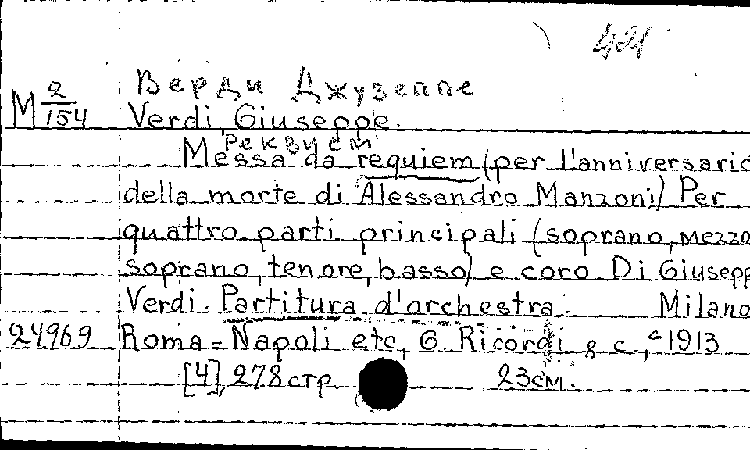 421
Верди Джузеппе
M 2/154 Verdi, Giuseppe.
Реквием
Messa da requiem (per l'anniversario
della morte di Alessandro Manzoni) Per
quattro parti principali (soprano, mezzo
soprano, tenore, basso) e coro Di Giusepp
Verdi. Partitura d'orchestra. Milano
24969 Roma = Napoli etc, G. Ricordi & c, c 1913
[4], 278 стр 23 см.